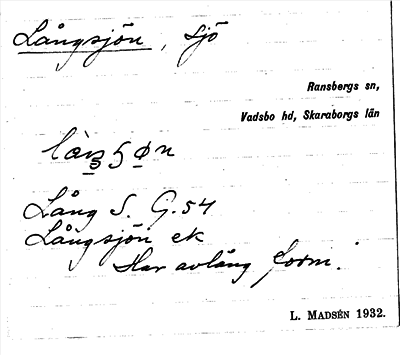 Långsjön, sjö
Ransbergs sn,
Vadsbo hd, Skaraborgs län
Lång S. G.54
Långsjön ek
Har avlång form.
L. MADSÉN 1932.